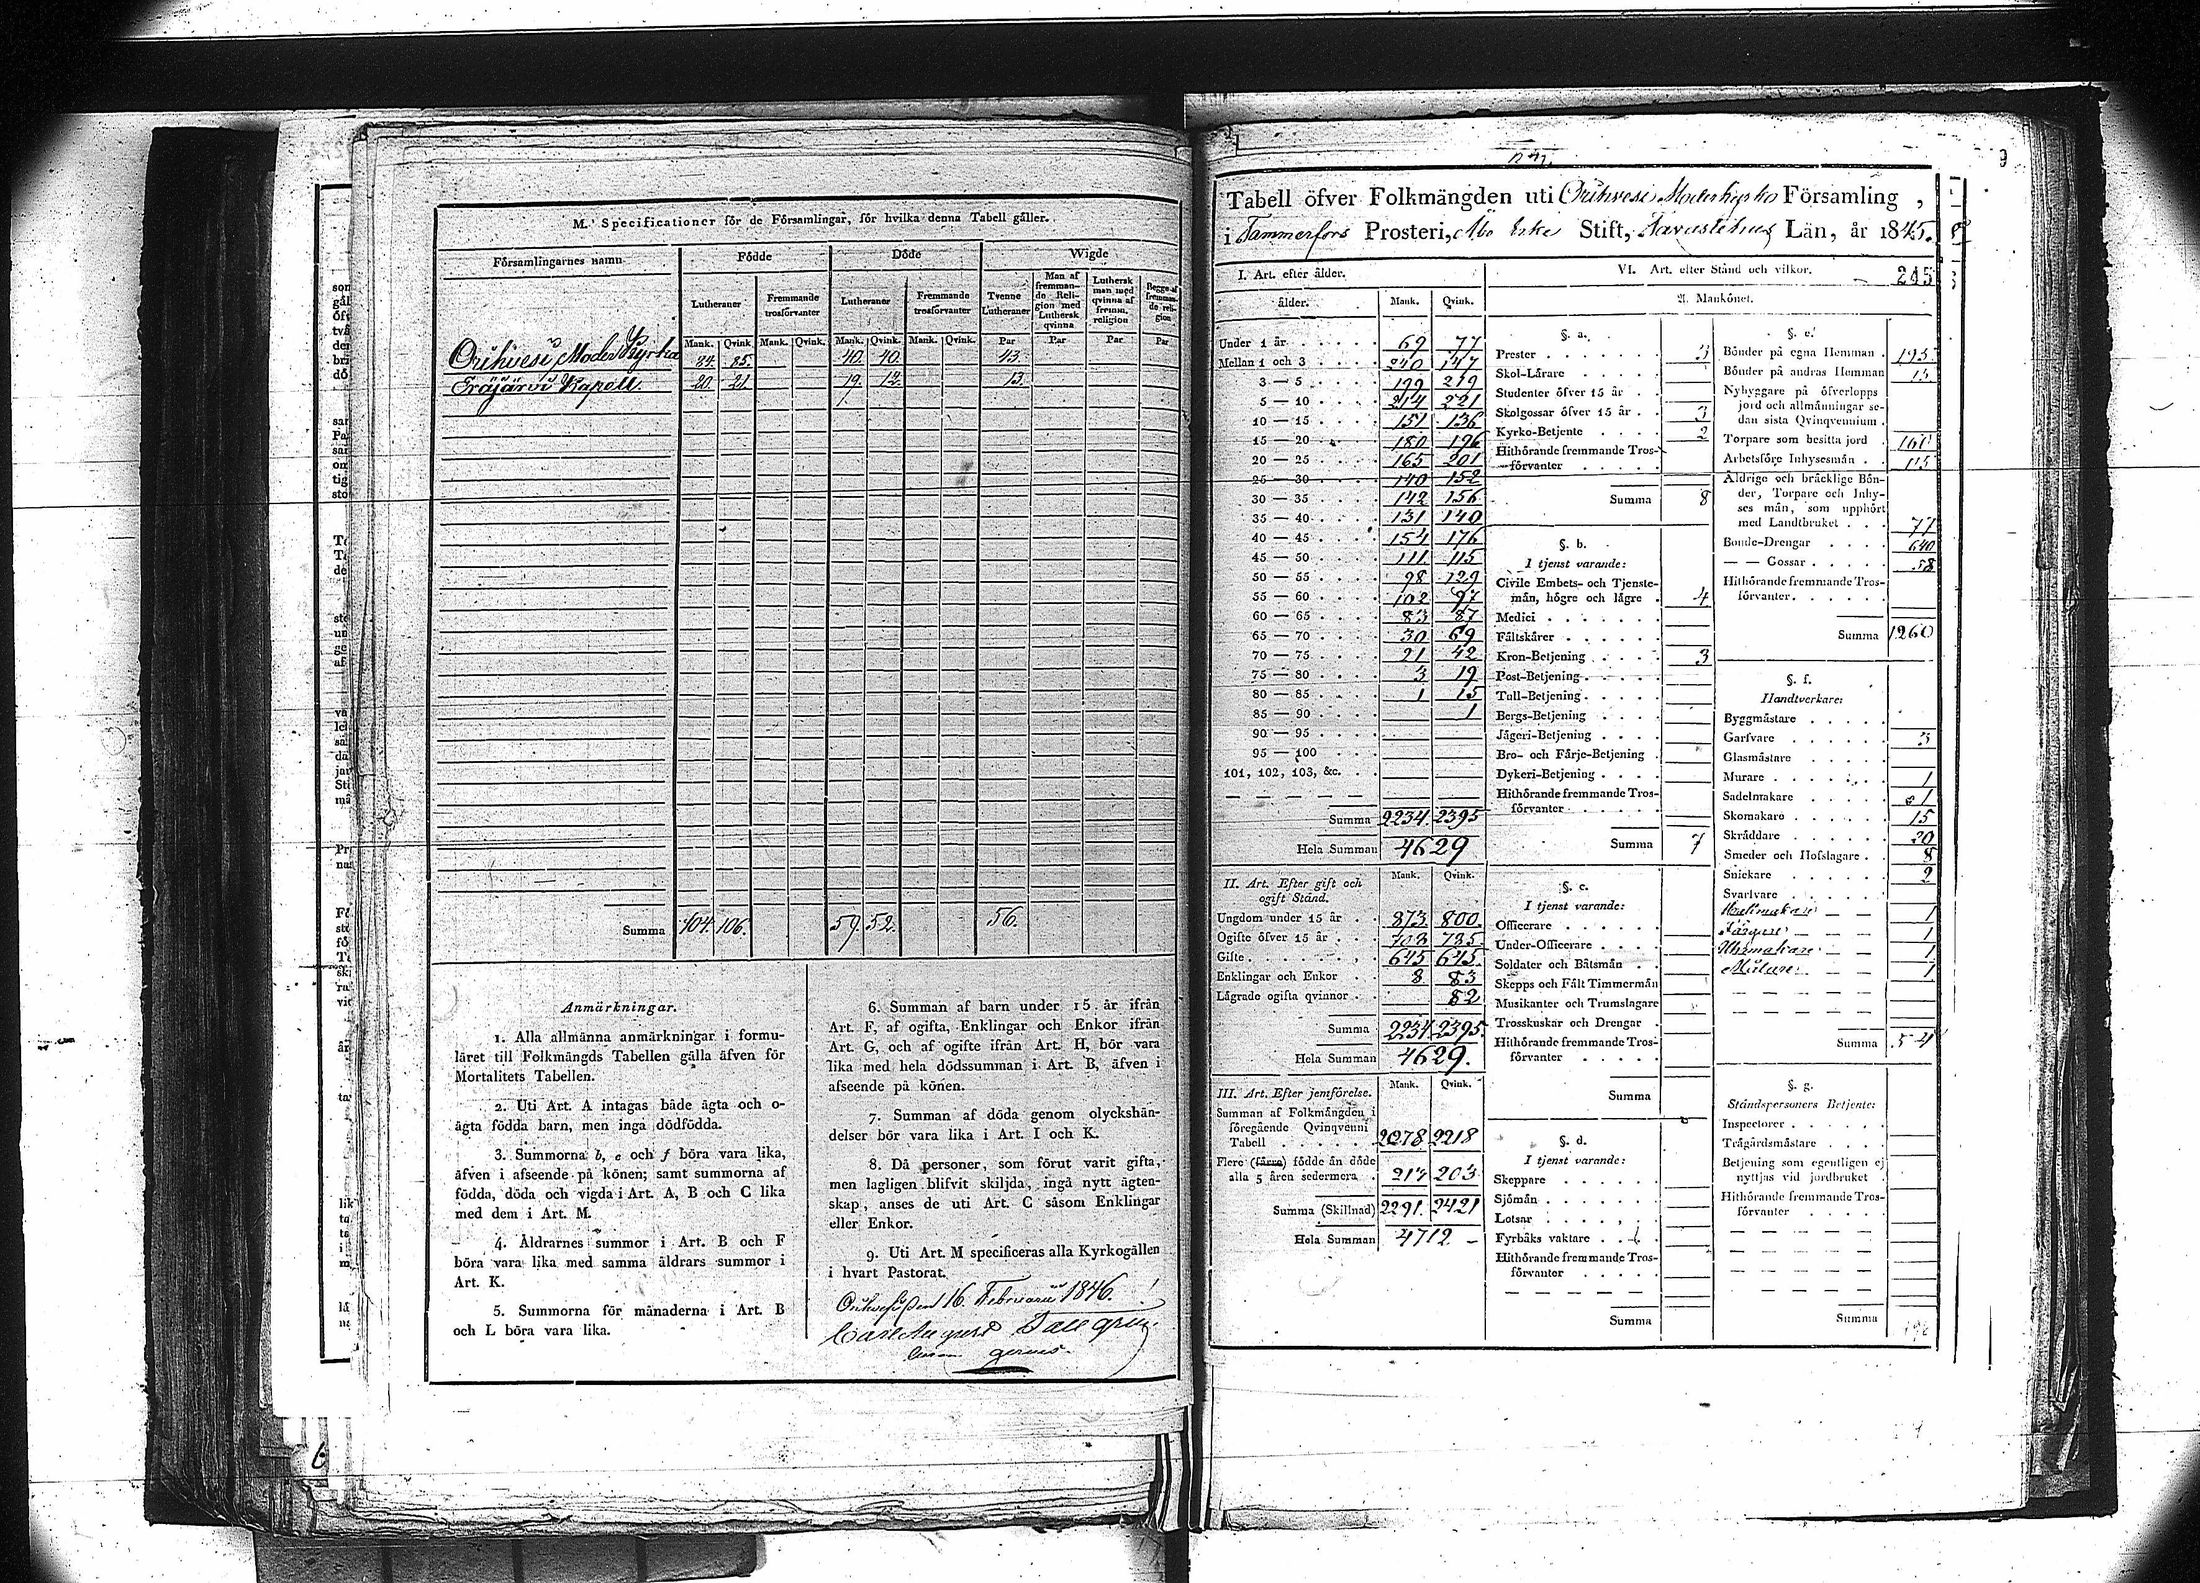 M. Specificationer för de Församlingar, för hvilka denna Tabell gäller.
Församlingarnes namn
Födde
Döde
Wigde
Lutheraner
Fremmande trosförvanter
Lutheraner
Fremmande trosförvanter
Tvenne Lutheraner
Man af fremmande Religion med Luthersk qvinna
Luthersk man med qvinna af fremm. religion
Begge af fremmande religion
Mank. Qvink. Mank. Qvink. Mank. Qvink. Mank. Qvink. Par Par Par Par
Orihvesi Moder Kyrka 84. 85. 40. 40. 43.
Eräjärvi Kapell 20. 21. 19. 12. 13.
Summa 104. 106. 59. 52. 56.
Anmärkningar.
1. Alla allmänna anmärkningar i formu-
läret till Folkmängds Tabellen gälla äfven för
Mortalitets Tabellen.
2. Uti Art. A intagas både ägta och o-
ägta födda barn, men inga dödfödda.
3. Summorna b, c och f böra vara lika,
äfven i afseende på könen; samt summorna af
födda, döda och vigda i Art. A, B och C lika
med dem i Art. M.
4. Åldrarnes summor i Art. B och F
böra vara lika med samma åldrars summor i
Art. K.
5. Summorna för månaderna i Art. B
och L böra vara lika.
6. Summan af barn under 15 år ifrån
Art. F, af ogifta, Enklingar och Enkor ifrån
Art. G, och af ogifte ifrån Art. H, bör vara
lika med hela dödssumman i Art. B, äfven i
afseende på könen.
7. Summan af döda genom olyckshän-
delser bör vara lika i Art. I och K.
8. Då personer, som förut varit gifta,
men lagligen blifvit skiljda, ingå nytt ägten-
skap, anses de uti Art. C såsom Enklingar
eller Enkor.
9. Uti Art. M specificeras alla Kyrkogällen
i hvart Pastorat.
den 16. Februarii 1846.
Carl August
Tabell öfver Folkmängden uti Orihvesi Moderkyrko Församling,
i Tammerfors Prosteri, Åbo Erke Stift, Tavastehus Län, år 1845.
I. Art. efter ålder.
ålder. Mank. Qvink.
Under 1 år 69 77
Mellan 1 och 3 240 147
3 — 5 199 219
5 — 10 214 221
10 — 15 151 136
15 — 20 180 196
20 — 25 165 201
25 — 30 140 152
30 — 35 142 156
35 — 40 131 140
40 — 45 154 176
45 — 50 111 115
50 — 55 98 129
55 — 60 102 97
60 — 65 83 87
65 — 70 30 69
70 — 75 21 42
75 — 80 3 19
80 — 85 1 15
85 — 90 1
90 — 95
95 — 100
101, 102, 103, &c.
Summa 2234. 2395
Hela Summan 4629
II. Art. Efter gift och ogift Stånd. Mank. Qvink.
Ungdom under 15 år 873 800
Ogifte öfver 15 år 703 735
Gifte 645 645
Enklingar och Enkor 8 83
Lägrade ogifta qvinnor 82
Summa 2234. 2395
Hela Summan 4629.
III. Art. Efter jemförelse. Mank. Qvink.
Summan af Folkmängden i
föregående Qvinqvenni
Tabell 2078 2218
Flere (färre) födde än döde
alla 5 åren sedermera 213 203
Summa (Skillnad) 2291. 2421
Hela Summan 4712 -
VI. Art. efter Stånd och vilkor. 245
A. Mankönet.
§. a.
Prester 3
Skol-Lärare
Studenter öfver 15 år
Skolgossar öfver 15 år 3
Kyrko-Betjente 2
Hithörande fremmande Tros-
förvanter
Summa 8
§. b.
I tjenst varande:
Civile Embets- och Tjenste-
män, högre och lägre 4
Medici
Fältskärer
Kron-Betjening 3
Post-Betjening
Tull-Betjening
Bergs-Betjening
Jägeri-Betjening
Bro- och Färje-Betjening
Dykeri-Betjening
Hithörande fremmande Tros-
förvanter
Summa 7
§. c.
I tjenst varande:
Officerare
Under-Officerare
Soldater och Båtsmän
Skepps och Fält Timmermän
Musikanter och Trumslagare
Trosskuskar och Drengar
Hithörande fremmande Tros-
förvanter
Summa
§. d.
I tjenst varande:
Skeppare
Sjömän
Lotsar
Fyrbåks vaktare
Hithörande fremmande Tros-
förvanter
Summa
§. e.
Bönder på egna Hemman 195
Bönder på andras Hemman 15
Nybyggare på öfverlopps
jord och allmänningar se-
dan sista Qvinqvennium
Torpare som besitta jord 160
Arbetsföre Inhysesmän 115
Åldrige och bräcklige Bön-
der, Torpare och Inhy-
ses män, som upphört
med Landtbruket 77
Bonde-Drengar 640
— — Gossar 58
Hithörande fremmande Tros-
förvanter
Summa 1260
§. f.
Handtverkare:
Byggmästare
Garfvare 3
Glasmästare
Murare 1
Sadelmakare 1
Skomakare 15
Skräddare 20
Smeder och Hofslagare 8
Snickare 2
Svarfvare
Hattmakare 1
Färgare 1
Uhrmakare 1
Målare 1
Summa 54
§. g.
Ståndspersoners Betjente:
Inspectorer
Trägårdsmästare
Betjening som egentligen ej
nyttjas vid jordbruket
Hithörande fremmande Tros-
förvanter
Summa